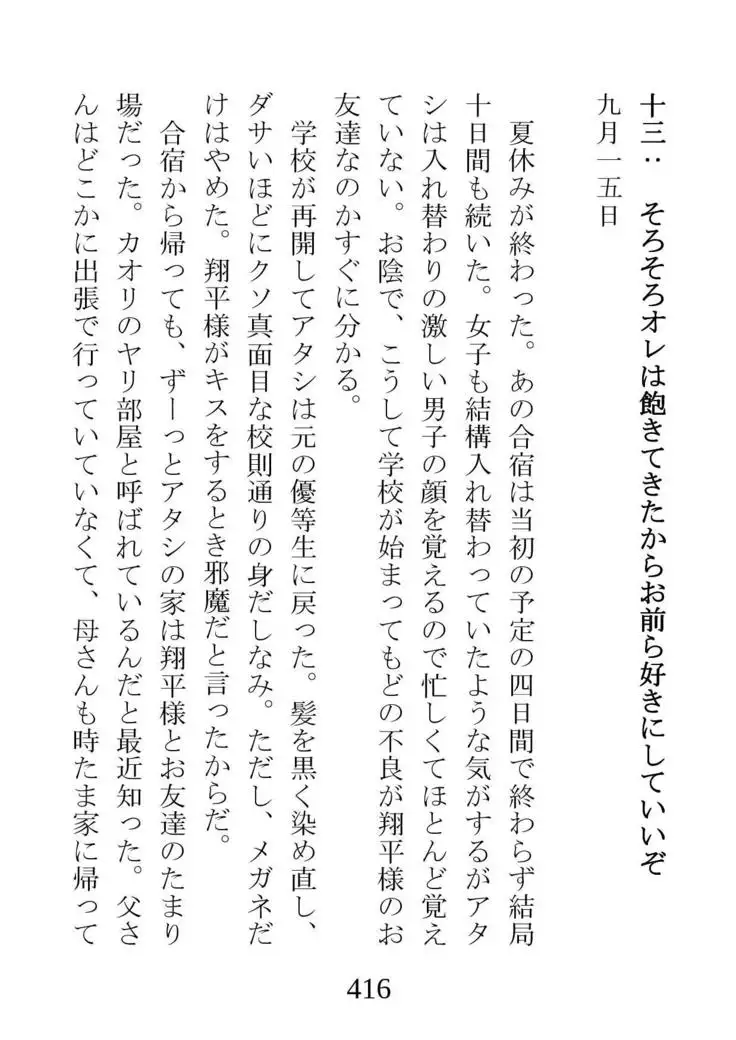 十三： そろそろオレは飽きてきたからお前ら好きにしていいぞ
九月一五日
夏休みが終わった。あの合宿は当初の予定の四日間で終わらず結局
十日間も続いた。女子も結構入れ替わっていたような気がするがアタ
シは入れ替わりの激しい男子の顔を覚えるので忙しくてほとんど覚え
ていない。お陰で、こうして学校が始まってもどの不良が翔平様のお
友達なのかすぐに分かる。
学校が再開してアタシは元の優等生に戻った。髪を黒く染め直し、
ダサいほどにクソ真面目な校則通りの身だしなみ。ただし、メガネだ
けはやめた。翔平様がキスをするとき邪魔だと言ったからだ。
合宿から帰っても、ずーっとアタシの家は翔平様とお友達のたまり
場だった。カオリのヤリ部屋と呼ばれているんだと最近知った。父さ
んはどこかに出張で行っていていなくて、母さんも時たま家に帰って
416